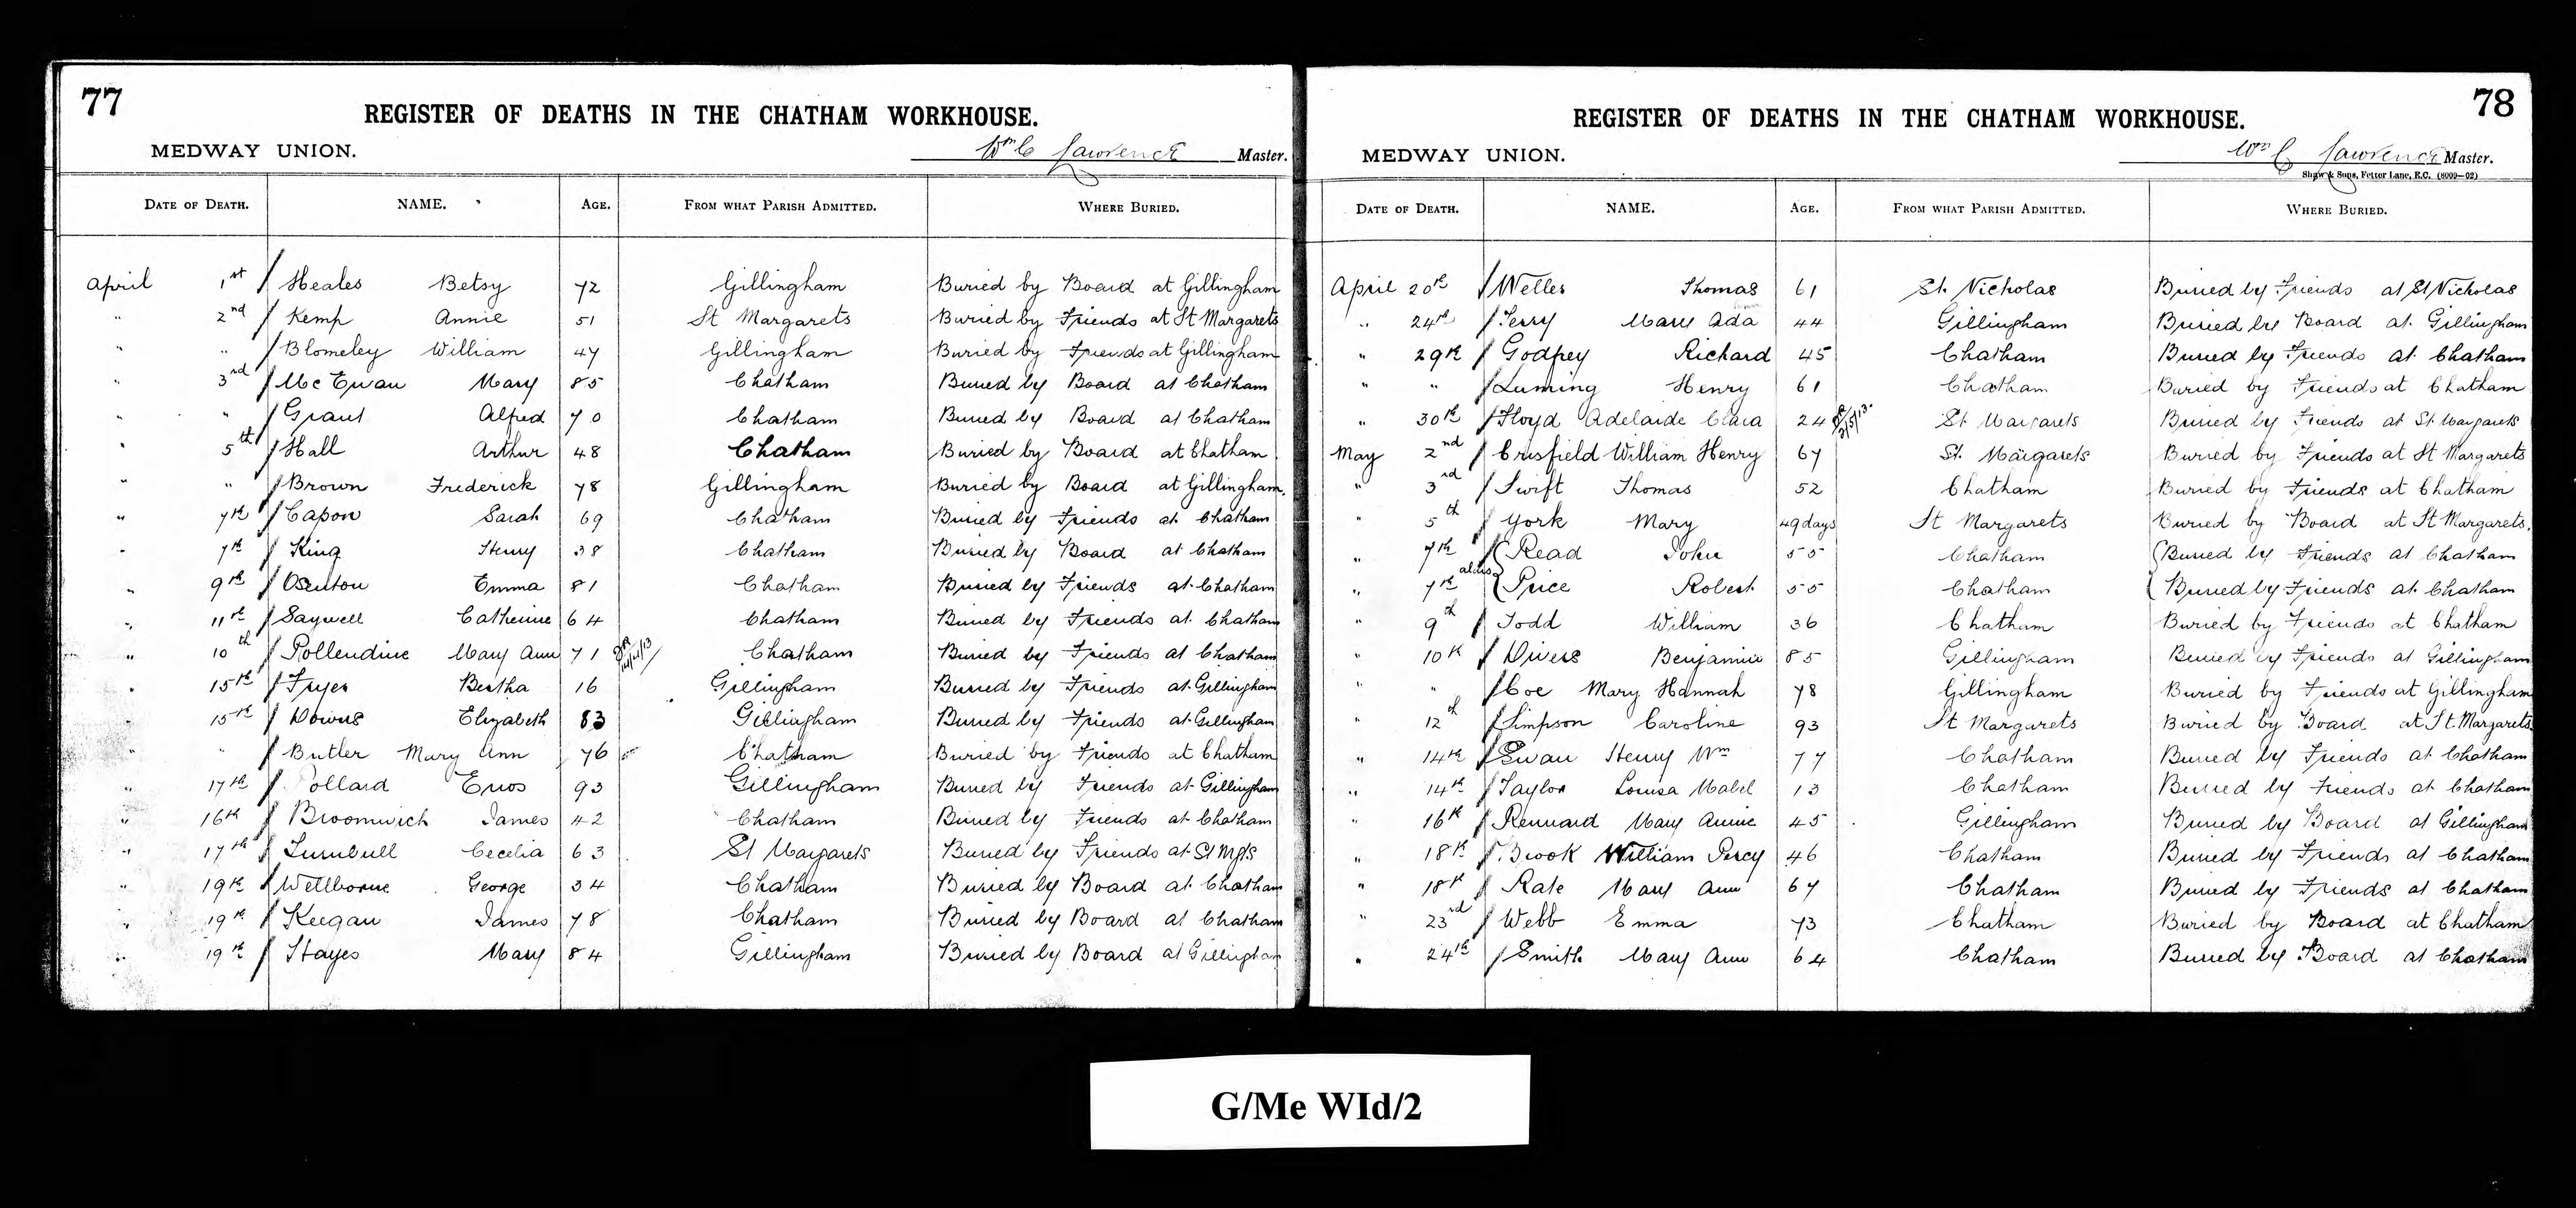 77
REGISTER OF DEATHS IN THE CHATHAM WORKHOUSE.
MEDWAY UNION. Wm C Lawrence Master.
DATE OF DEATH. NAME. AGE. FROM WHAT PARISH ADMITTED. WHERE BURIED.
April 1st Heales Betsy 72 Gillingham Buried by Board at Gillingham
" 2nd Kemp Annie 51 St Margarets Buried by Friends at St Margarets
" " Blomeley William 47 Gillingham Buried by Friends at Gillingham
" 3rd Mc Ewan Mary 85 Chatham Buried by Board at Chatham
" " Grant Alfred 70 Chatham Buried by Board at Chatham
" 5th Hall Arthur 48 Chatham Buried by Board at Chatham
" " Brown Frederick 78 Gillingham Buried by Board at Gillingham.
" 7th Capon Sarah 69 Chatham Buried by Friends at Chatham
" 7th King Henry 38 Chatham Buried by Board at Chatham
" 9th Osenton Emma 81 Chatham Buried by Friends at Chatham
" 11th Saywell Catherine 64 Chatham Buried by Friends at Chatham
" 10th Pollendine Mary Ann 71 Chatham Buried by Friends at Chatham
" 15th Fryer Bertha 16 Gillingham Buried by Friends at Gillingham
" 15th Downs Elizabeth 83 Gillingham Buried by Friends at Gillingham
" " Butler Mary Ann 76 Chatham Buried by Friends at Chatham
" 17th Pollard Enos 93 Gillingham Buried by Friends at Gillingham
" 16th Broomwich James 42 Chatham Buried by Friends at Chatham
" 17th Turnbull Cecelia 63 St Margarets Buried by Friends at St Mgts
" 19th Wellborne George 34 Chatham Buried by Board at Chatham
" 19th Keegan James 78 Chatham Buried by Board at Chatham
" 19th Hayes Mary 84 Gillingham Buried by Board at Gillingham
78
REGISTER OF DEATHS IN THE CHATHAM WORKHOUSE.
MEDWAY UNION. Wm C Lawrence Master.
Shaw & Sons, Fetter Lane, E.C. (8009—02)
DATE OF DEATH. NAME. AGE. FROM WHAT PARISH ADMITTED. WHERE BURIED.
April 20th Welles Thomas 61 St. Nicholas Buried by Friends at St Nicholas
" 24th Terry Mary Ada 44 Gillingham Buried by Board at Gillingham
" 29th Godfrey Richard 45 Chatham Buried by Friends at Chatham
" " Luming Henry 61 Chatham Buried by Friends at Chatham
" 30th Floyd Adelaide Clara 24 St Margarets Buried by Friends at St Margarets
May 2nd Crisfield William Henry 67 St. Margarets Buried by Friends at St Margarets
" 3rd Swift Thomas 52 Chatham Buried by Friends at Chatham
" 5th York Mary 49 days St Margarets Buried by Board at St Margarets.
" 7th Read John 55 Chatham Buried by Friends at Chatham
" 7th alias Price Robert 55 Chatham Buried by Friends at Chatham
" 9th Todd William 36 Chatham Buried by Friends at Chatham
" 10th Divers Benjamin 85 Gillingham Buried by Friends at Gillingham
" " Coe Mary Hannah 78 Gillingham Buried by Friends at Gillingham
" 12th Simpson Caroline 93 St Margarets Buried by Board at St. Margarets
" 14th Swan Henry Wm 77 Chatham Buried by Friends at Chatham
" 14th Taylor Louisa Mabel 13 Chatham Buried by Friends at Chatham
" 16th Rennard Mary Annie 45 Gillingham Buried by Board at Gillingham
" 18th Brook William Percy 46 Chatham Buried by Friends at Chatham
" 18th Rate Mary Ann 67 Chatham Buried by Friends at Chatham
" 23rd Webb Emma 73 Chatham Buried by Board at Chatham
" 24th Smith Mary Ann 64 Chatham Buried by Board at Chatham
G/Me WId/2